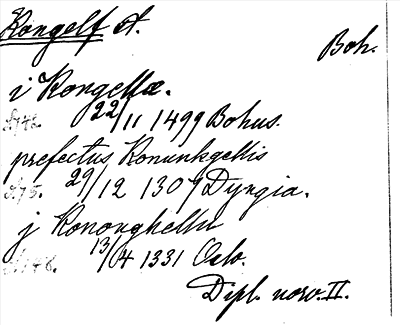 Kongelf st.
Boh.
i Kongellæ.
22/11 1499 Bohus.
prefectus Konunkgellis
29/12 1309 Dyngia.
j Kononghellu
13/4 1331 Oslo.
Dipl. norv. II.